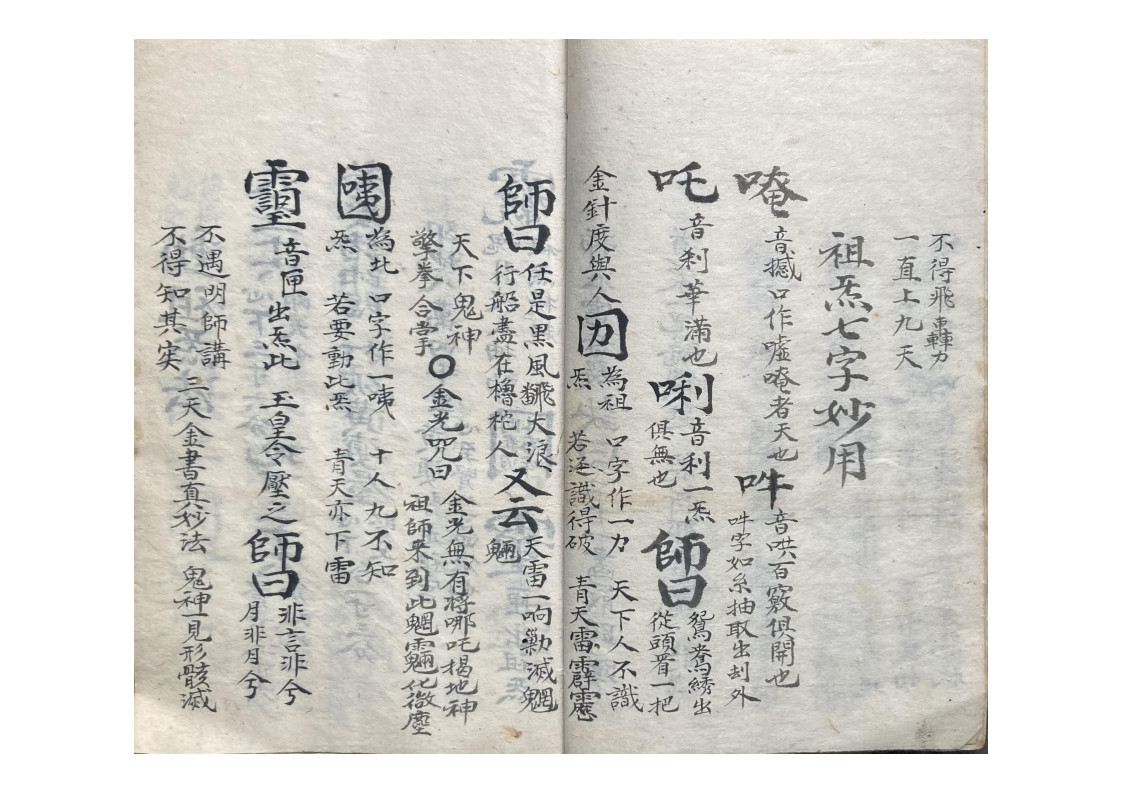 不得飛轟力
一直上九天
祖炁七字妙用
唵 音撼口作噓唵者天也
吽 音哄百竅俱開也
吽字如糸抽取出刲外
吒 音利華滿也
唎 音利一炁
俱無也
師曰 鴛鴦綉出
從頭看一把
金針度與人
囗力 為祖炁 口字作一力 天下人不識
若還識得破 青天雷霹靂
師曰 任是黑風翻大浪
行船盡在櫓柁人
又云 天雷一响勦滅魍魎
天下鬼神
擎拳合掌
〇金光咒曰 金光無有將哪吒揭地神
祖師來到此魍魎化微塵
咦 為北炁 口字作一咦 十人九不知
若要動此炁 青天亦下雷
靈 音匣 出炁此 玉皇令壓之
師曰 非言非兮
月非月兮
不遇明師講
不得知其实
三天金書真妙法 鬼神一見形骸滅